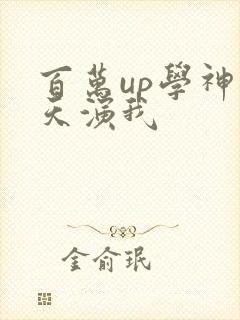 百萬up學神
天演我
金俞珉